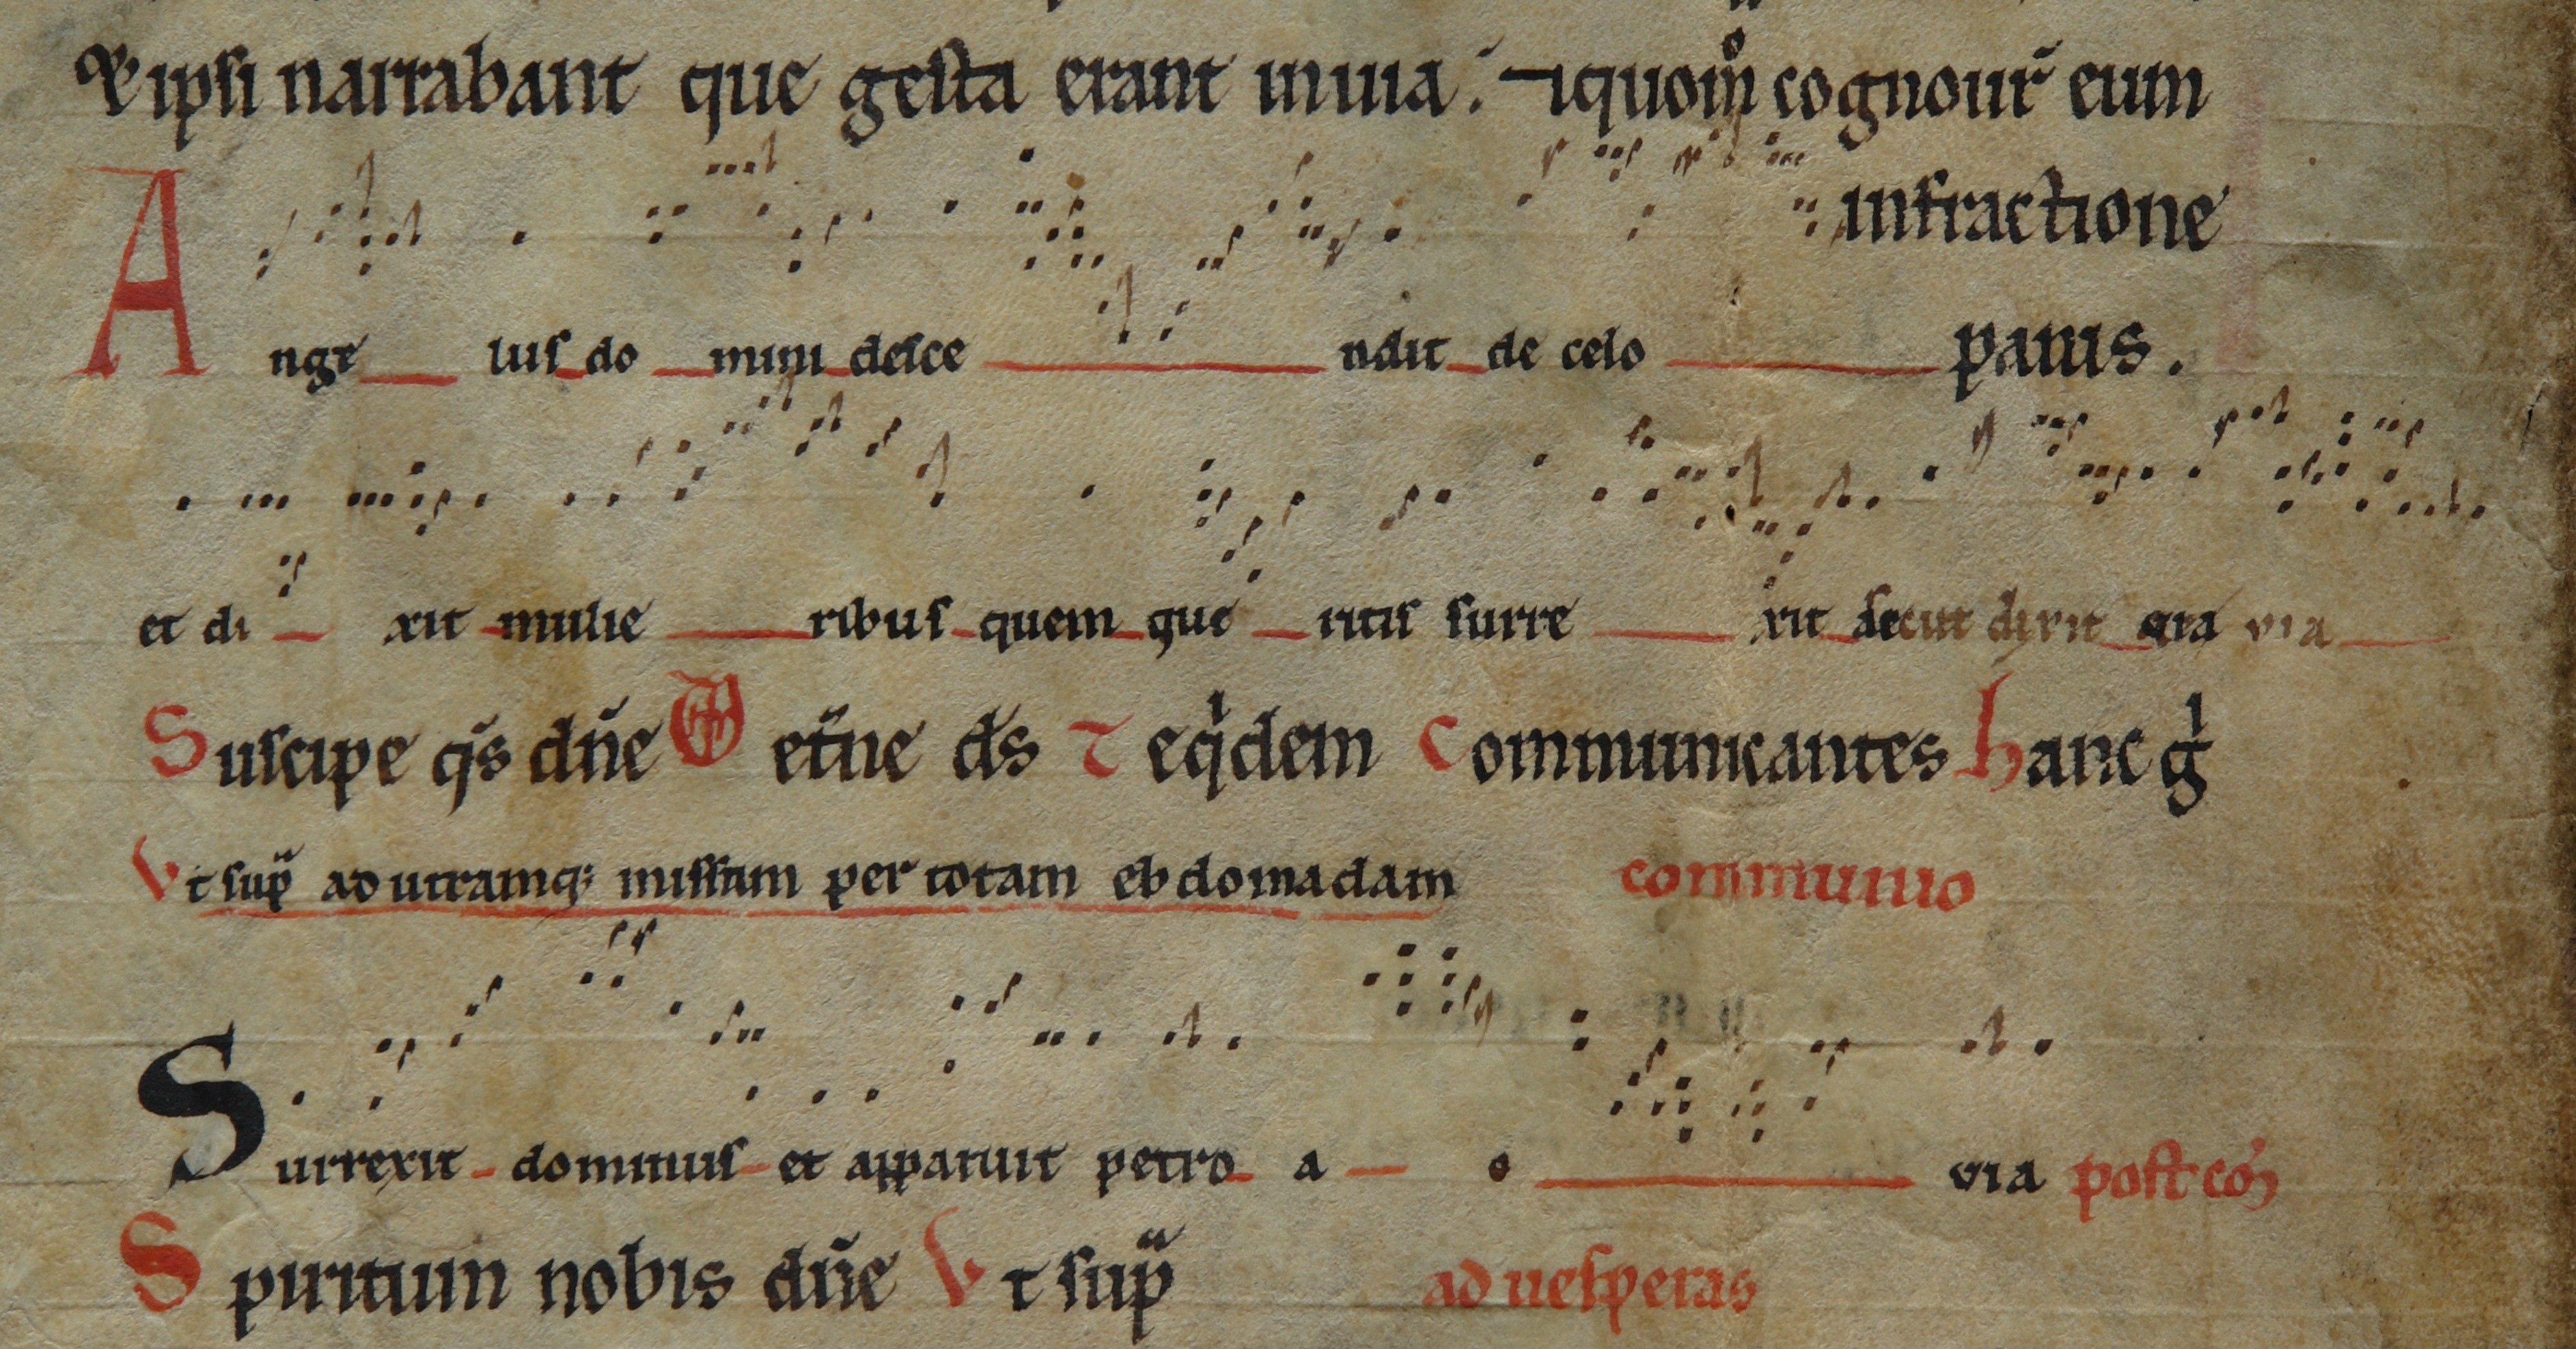 Et ipsi narrabant que gesta erant in uia: ⁊ quom̊ cognouer̄ eum
in fractione
Ange lus do mini desce ndit de celo panis.
et di xit mulie ribus quem que ritis surre xit sicut dixit aia via
Suscipe q̄s dn̄e VD et̄ne ds̄ Te qⁱdem Communicantes hanc gⁱ
Vt sup̄ ad utramq; missam per totam ebdomadam communio
Surrexit dominus et apparuit petro a e via post cōm
Spiritum nobis dn̄e Vt sup̄ ad uesperas